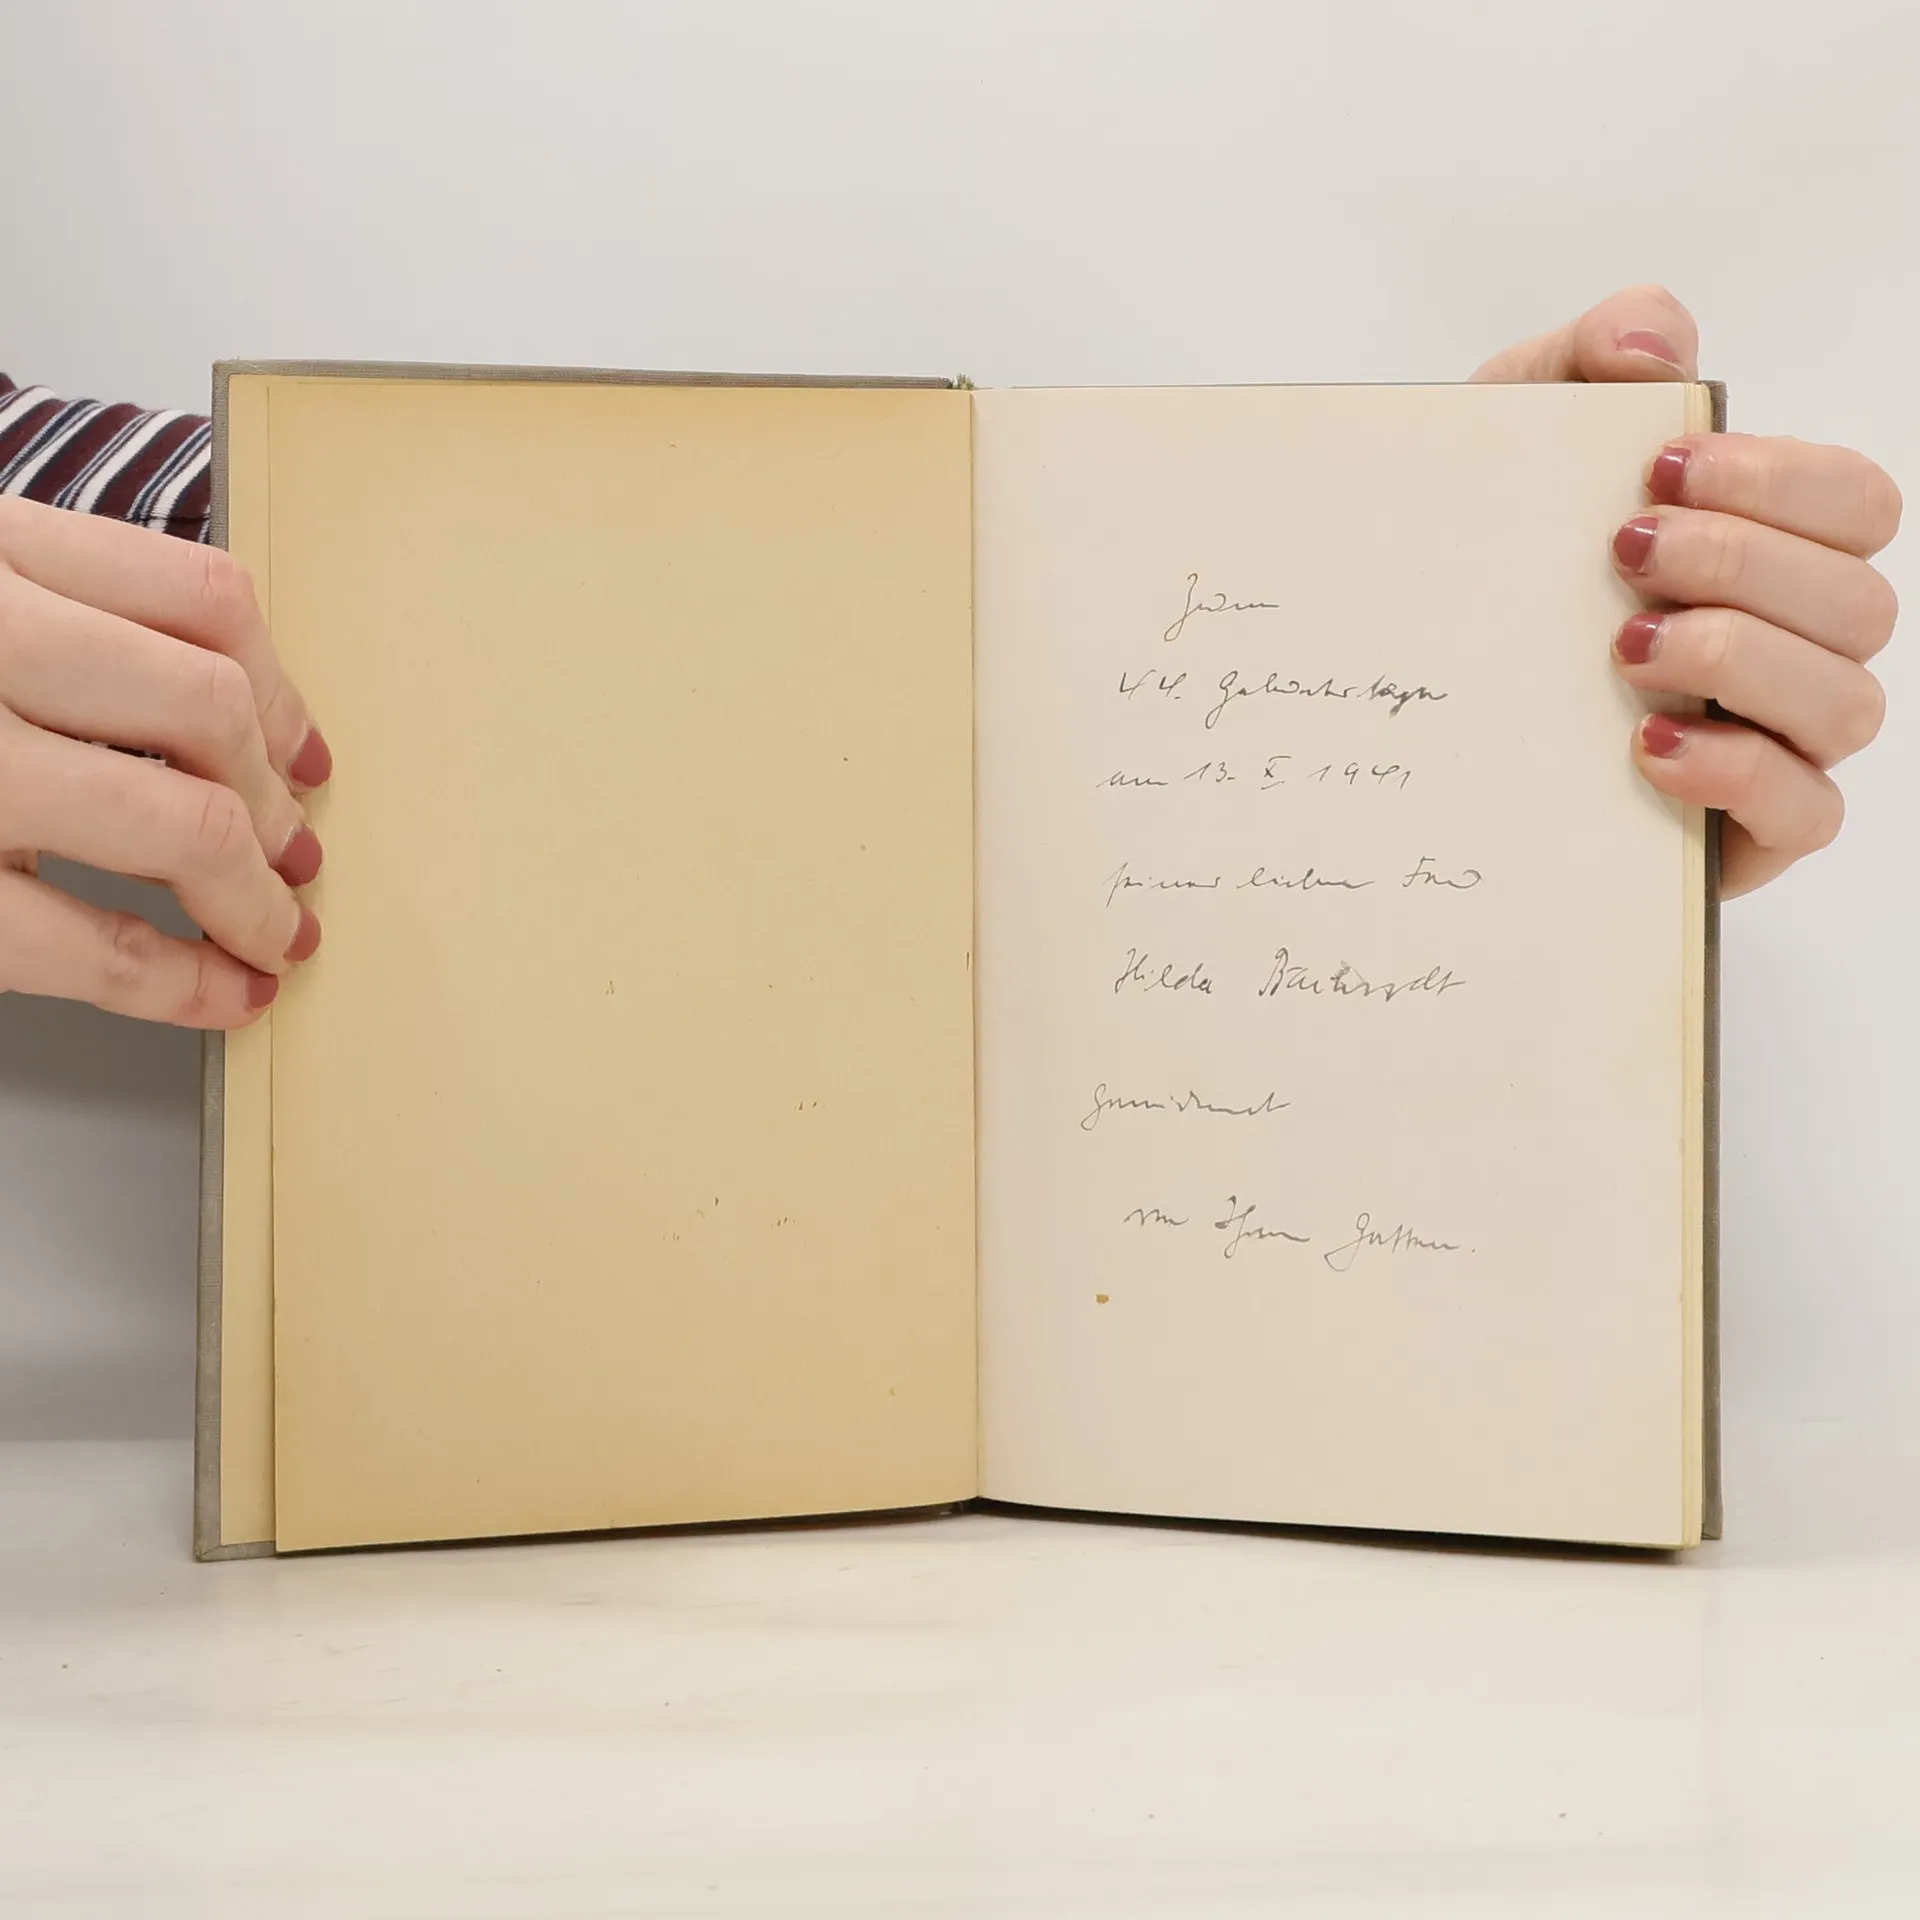 Zum
44. Geburtstage
am 13. X. 1941
seiner lieben Frau
Hilda
gewidmet
von Ihrem Gatten.